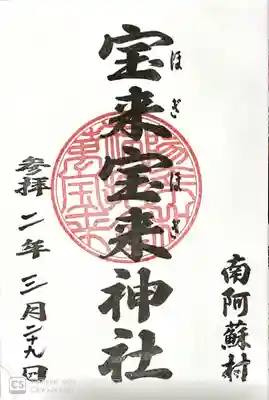 南阿蘇村
宝来宝来神社
ほぎ
ほぎ
参拝 二年 三月二十九日
CS Scanned with
CamScanner